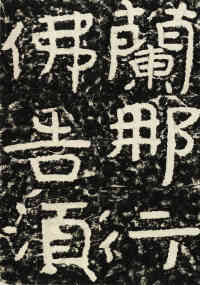 蘭那行
佛告須